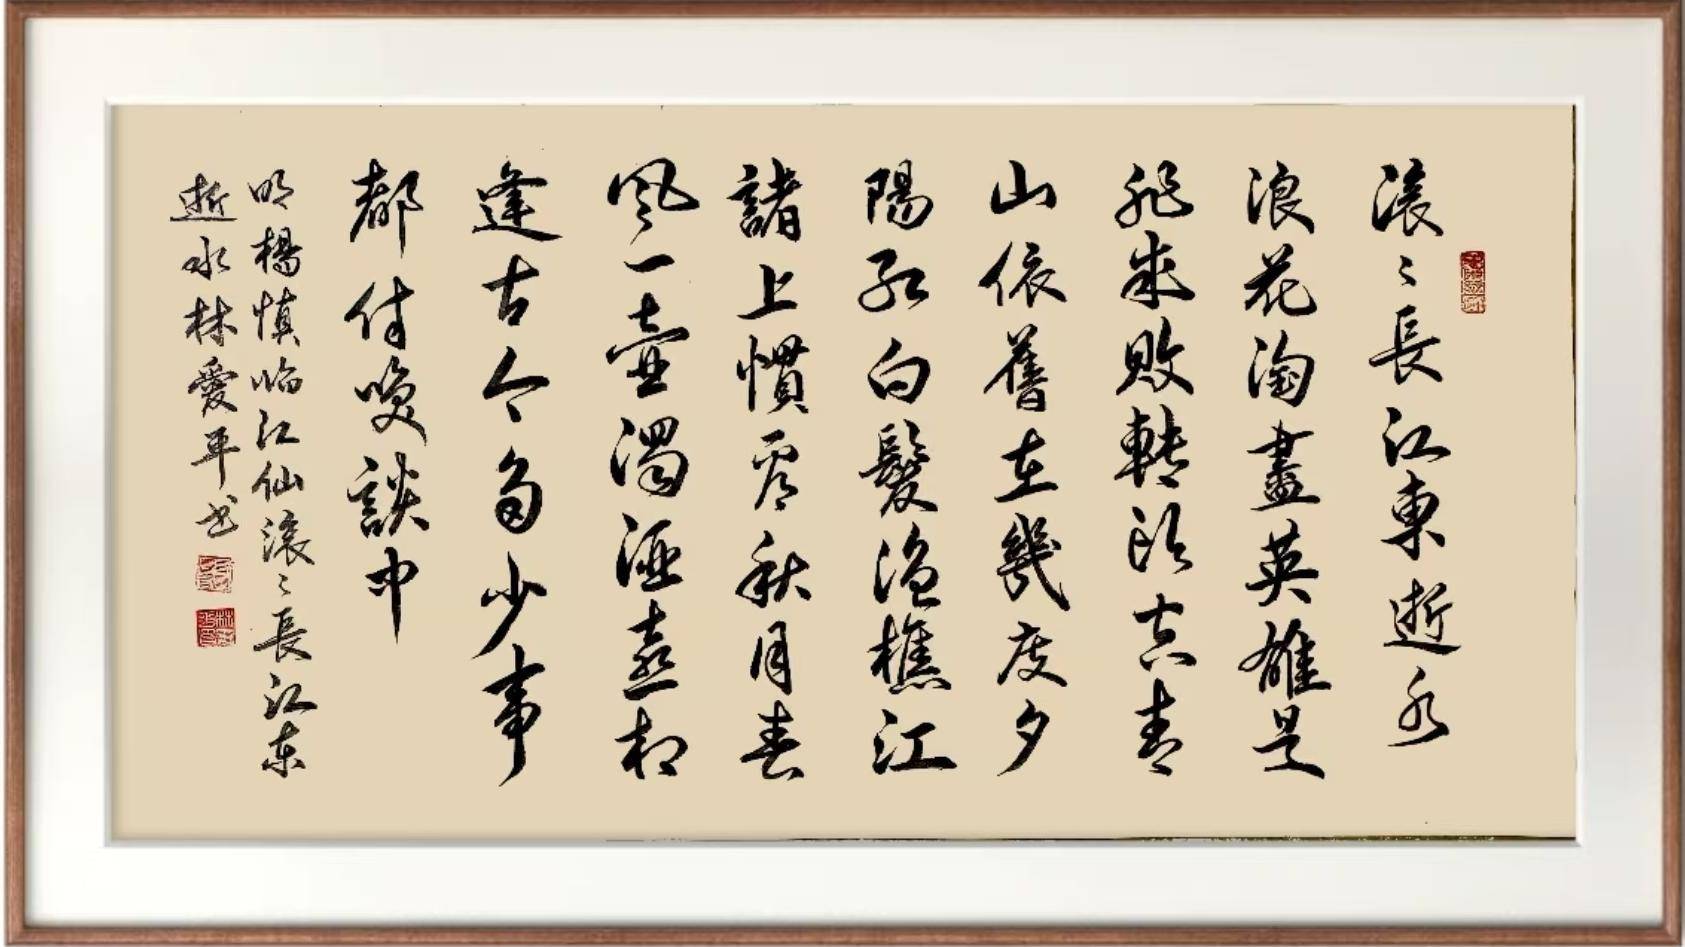 滚〻長江東逝水
浪花淘盡英雄是
非成敗轉頭空青
山依舊在幾度夕
陽紅白髮漁樵江
諸上慣看秋月春
風一壺濁酒喜相
逢古今多少事
都付咲談中
明楊慎临江仙滚〻長江东
逝水林愛平书